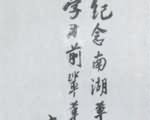 纪念南湖革
学习前辈革